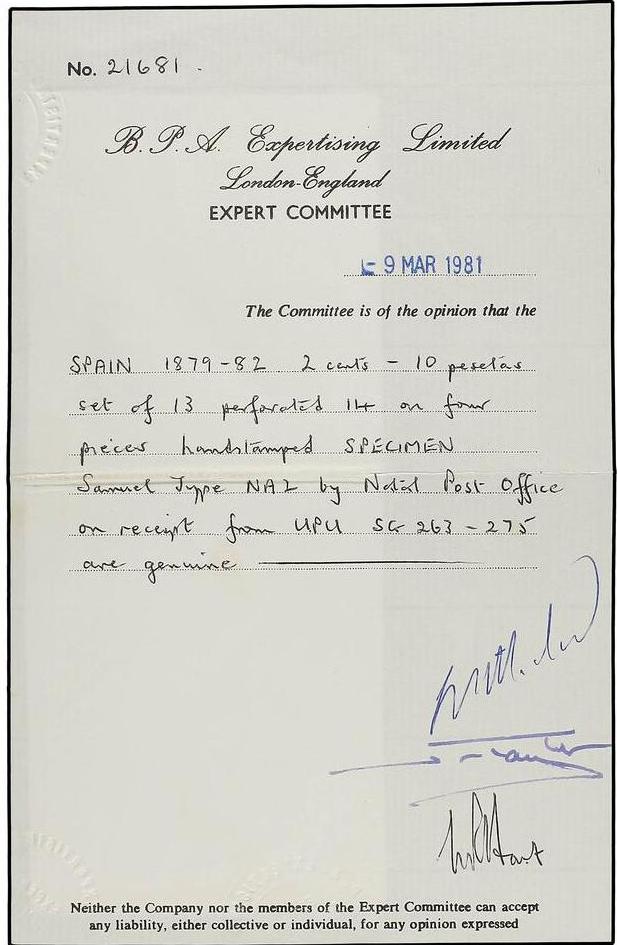 No. 21681.
B. P. A. Expertising Limited
London-England
EXPERT COMMITTEE
9 MAR 1981
The Committee is of the opinion that the
SPAIN 1879-82 2 cents - 10 pesetas
set of 13 perforated 14 on four
pieces handstamped SPECIMEN
Samuel Type NA2 by Natal Post Office
on receipt from UPU SG 263-275
are genuine
Neither the Company nor the members of the Expert Committee can accept
any liability, either collective or individual, for any opinion expressed